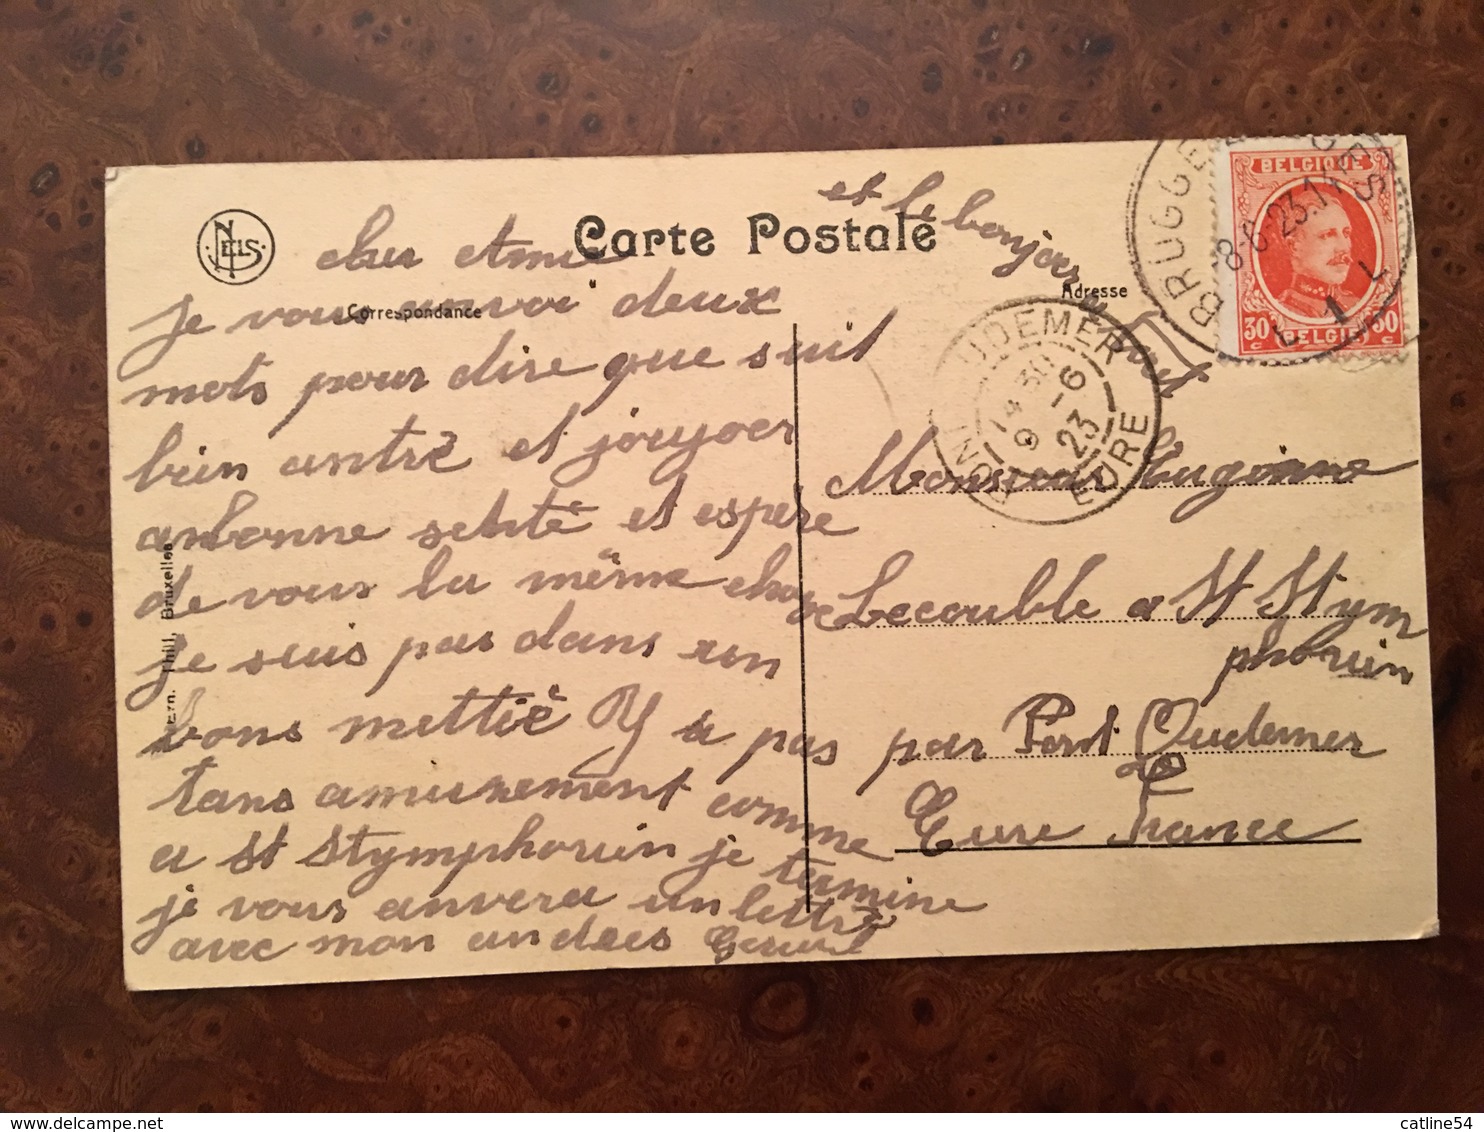 NELS
Carte Postale
Correspondance
Adresse
Ern. Thill, Bruxelles
BELGIQUE
30 c BELGIE 30 c
BRUGGE
8-6-23
AUDEMER
14 30
9 -6
23
EURE
cher ami
je vous anvoi deux
mots pour dire que suit
bien antré et
anbonne senté et espère
de vous la même chose
je suis pas dans un
bons mettié Y a pas
tans amusement comme
a St Stymphorien je termine
je vous anvera un lettre
avec mon
et le bonjour a
Monsieur Eugenne
Lecouble a St Stym
phorien
par Pont Audemer
Eure France
catline54